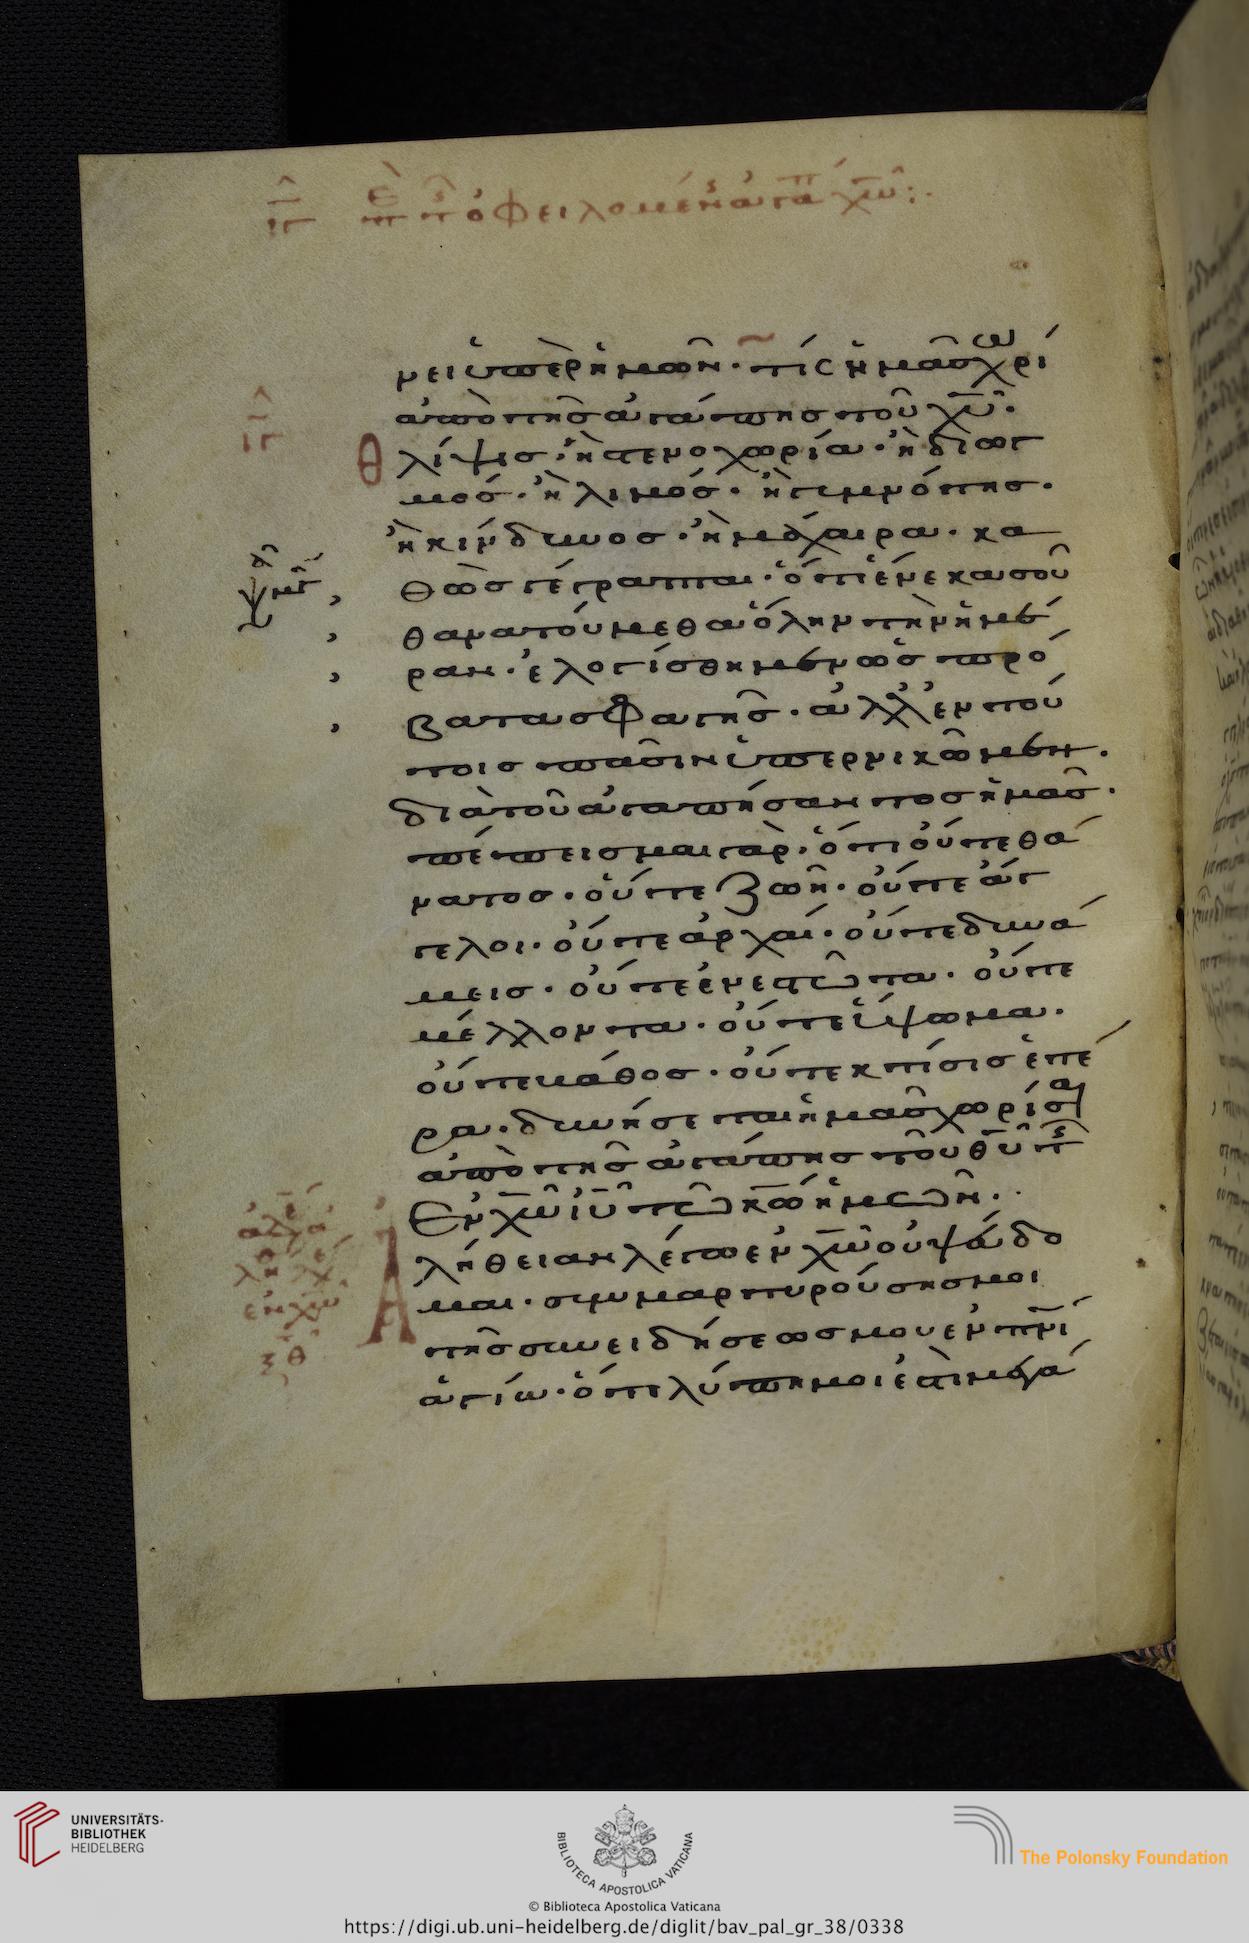 ιγ περὶ τῆς ὀφειλομένης ἀγάπης χῶ:.
νει ὑπὲρ ἡμῶν· τίς ἡμᾶς χωρί
ἀπὸ τῆς ἀγάπης τοῦ χῦ·
θλίψις· ἢ στενοχωρία· ἢ διωγ
μός· ἢ λιμός· ἢ γυμνότης·
ἢ κίνδυνος· ἢ μάχαιρα· κα
θὼς γέγραπται· ὅτι ἕνεκα σοῦ
θανατούμεθα ὅλην τὴν ἡμέ
ραν· ἐλογίσθημεν ὡς πρό
βατα σφαγῆς· ἀλλ' ἐν τού
τοις πᾶσιν ὑπερνικῶμεν·
διὰ τοῦ ἀγαπήσαντος ἡμᾶς·
πέπεισμαι γὰρ· ὅτι οὔτε θά
νατος· οὔτε ζωὴ· οὔτε ἄγ
γελοι· οὔτε ἀρχαί· οὔτε δυνά
μεις· οὔτε ἐνεστῶτα· οὔτε
μέλλοντα· οὔτε ὕψωμα·
οὔτε βάθος· οὔτε κτίσις ἑτέ
ρα· δυνήσεται ἡμᾶς χωρίσαι
ἀπὸ τῆς ἀγάπης τοῦ θῦ τῆς
Ἐν χῶ ιῦ τῶ κῶ ἡμῶν·
Ἀλήθειαν λέγω ἐν χῶ οὐ ψεύδο
μαι· συμμαρτυρούσης μοι
τῆς συνειδήσεώς μου ἐν πνι
ἁγίω· ὅτι λύπη μοι ἐστὶ μεγά
UNIVERSITÄTS-
BIBLIOTHEK
HEIDELBERG
BIBLIOTECA APOSTOLICA VATICANA
The Polonsky Foundation
© Biblioteca Apostolica Vaticana
https://digi.ub.uni-heidelberg.de/diglit/bav_pal_gr_38/0338